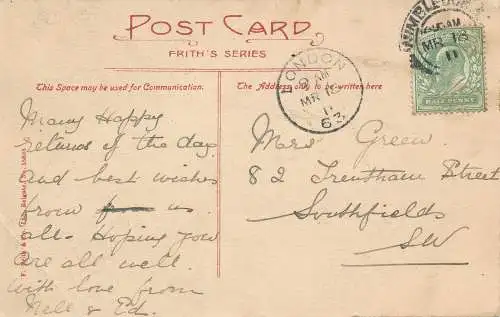 POST CARD
FRITH'S SERIES
This Space may be used for Communication.
The Address only to be written here
WIMBLEDON
MR 16
11
LONDON
9 AM
MR 16
11
63
HALF PENNY
Many Happy
returns of the day
and best wishes
from from us
all. Hoping you
are all well.
With love from
Nell & Ed.
Mrs Green
82 Trentham Street
Southfields
SW
F. Frith & Co. Ltd., Reigate